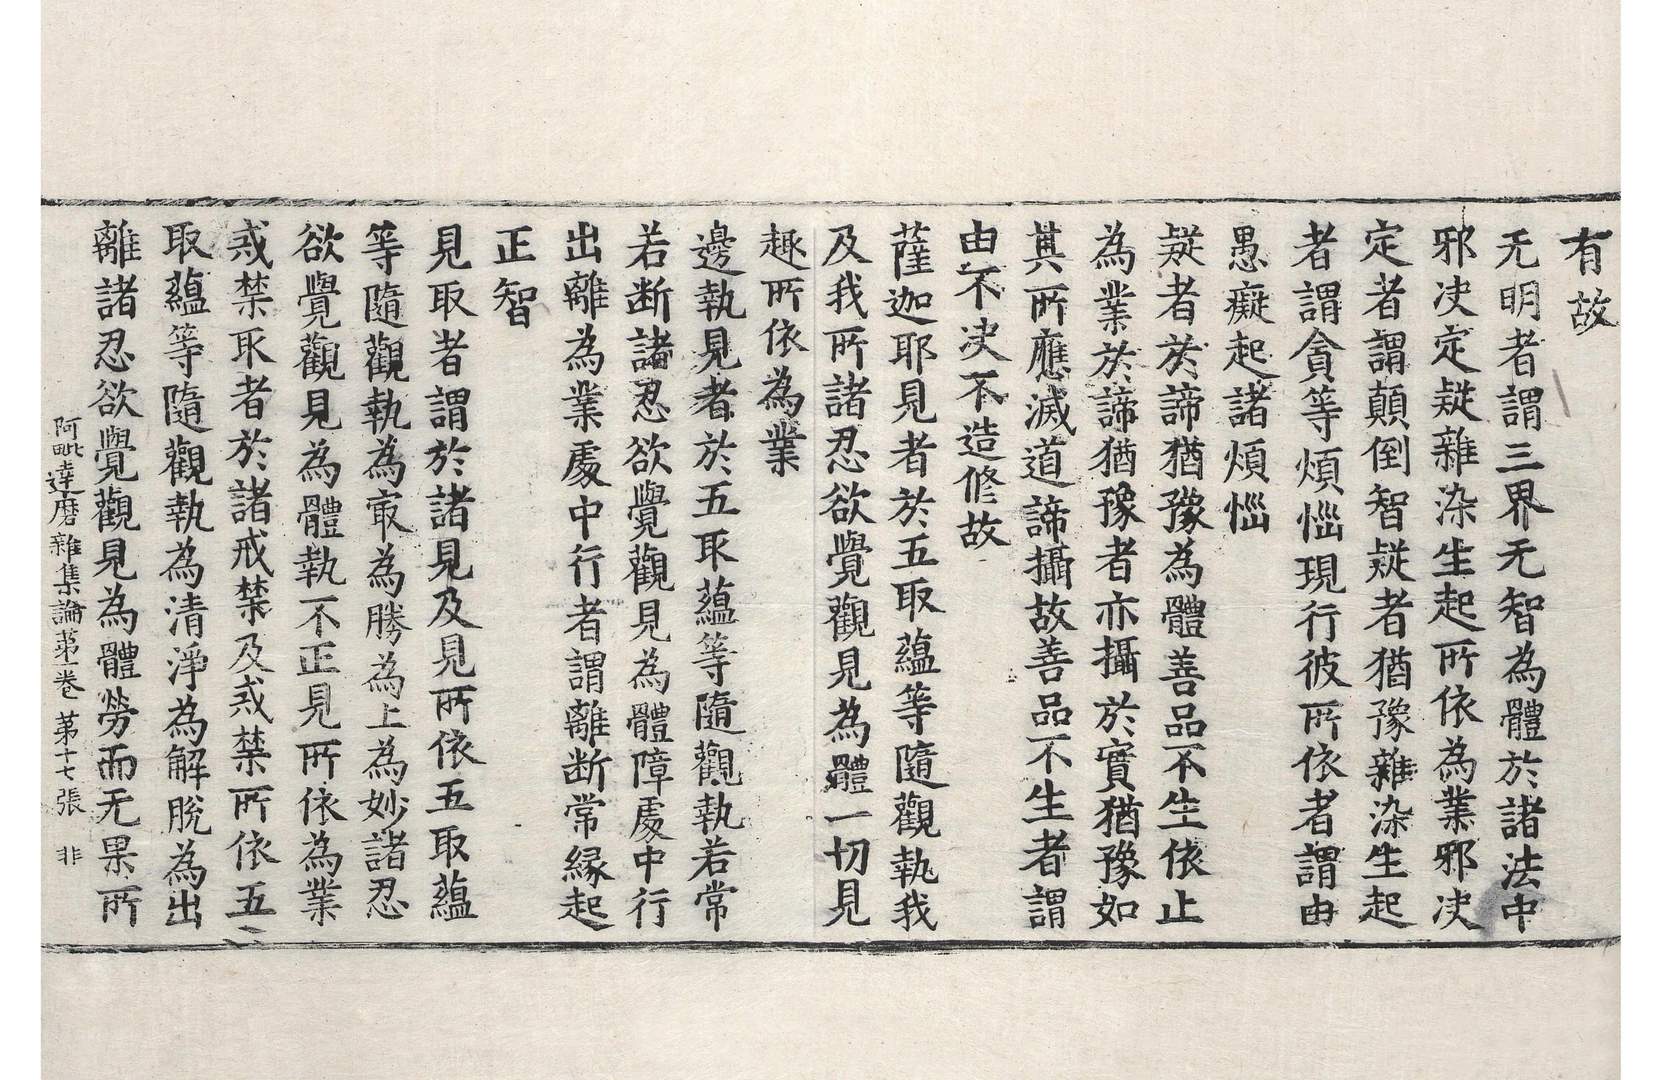 有故
无明者謂三界无智為體於諸法中
邪决定疑雜染生起所依為業邪决
定者謂顛倒智疑者猶豫雜染生起
者謂貪等煩惱現行彼所依者謂由
愚癡起諸煩惱
疑者於諦猶豫為體善品不生依止
為業於諦猶豫者亦攝於實猶豫如
其所應滅道諦攝故善品不生者謂
由不决不造修故
薩迦耶見者於五取蘊等隨觀執我
及我所諸忍欲覺觀見為體一切見
趣所依為業
邊執見者於五取蘊等隨觀執若常
若断諸忍欲覺觀見為體障處中行
出離為業處中行者謂離断常縁起
正智
見取者謂於諸見及見所依五取蘊
等隨觀執為㝡為勝為上為妙諸忍
欲覺觀見為體執不正見所依為業
戒禁取者於諸戒禁及戒禁所依五
取蘊等隨觀執為清淨為解脫為出
離諸忍欲覺觀見為體勞而无果所
阿毗達磨雜集論苐一卷 苐十七張 非